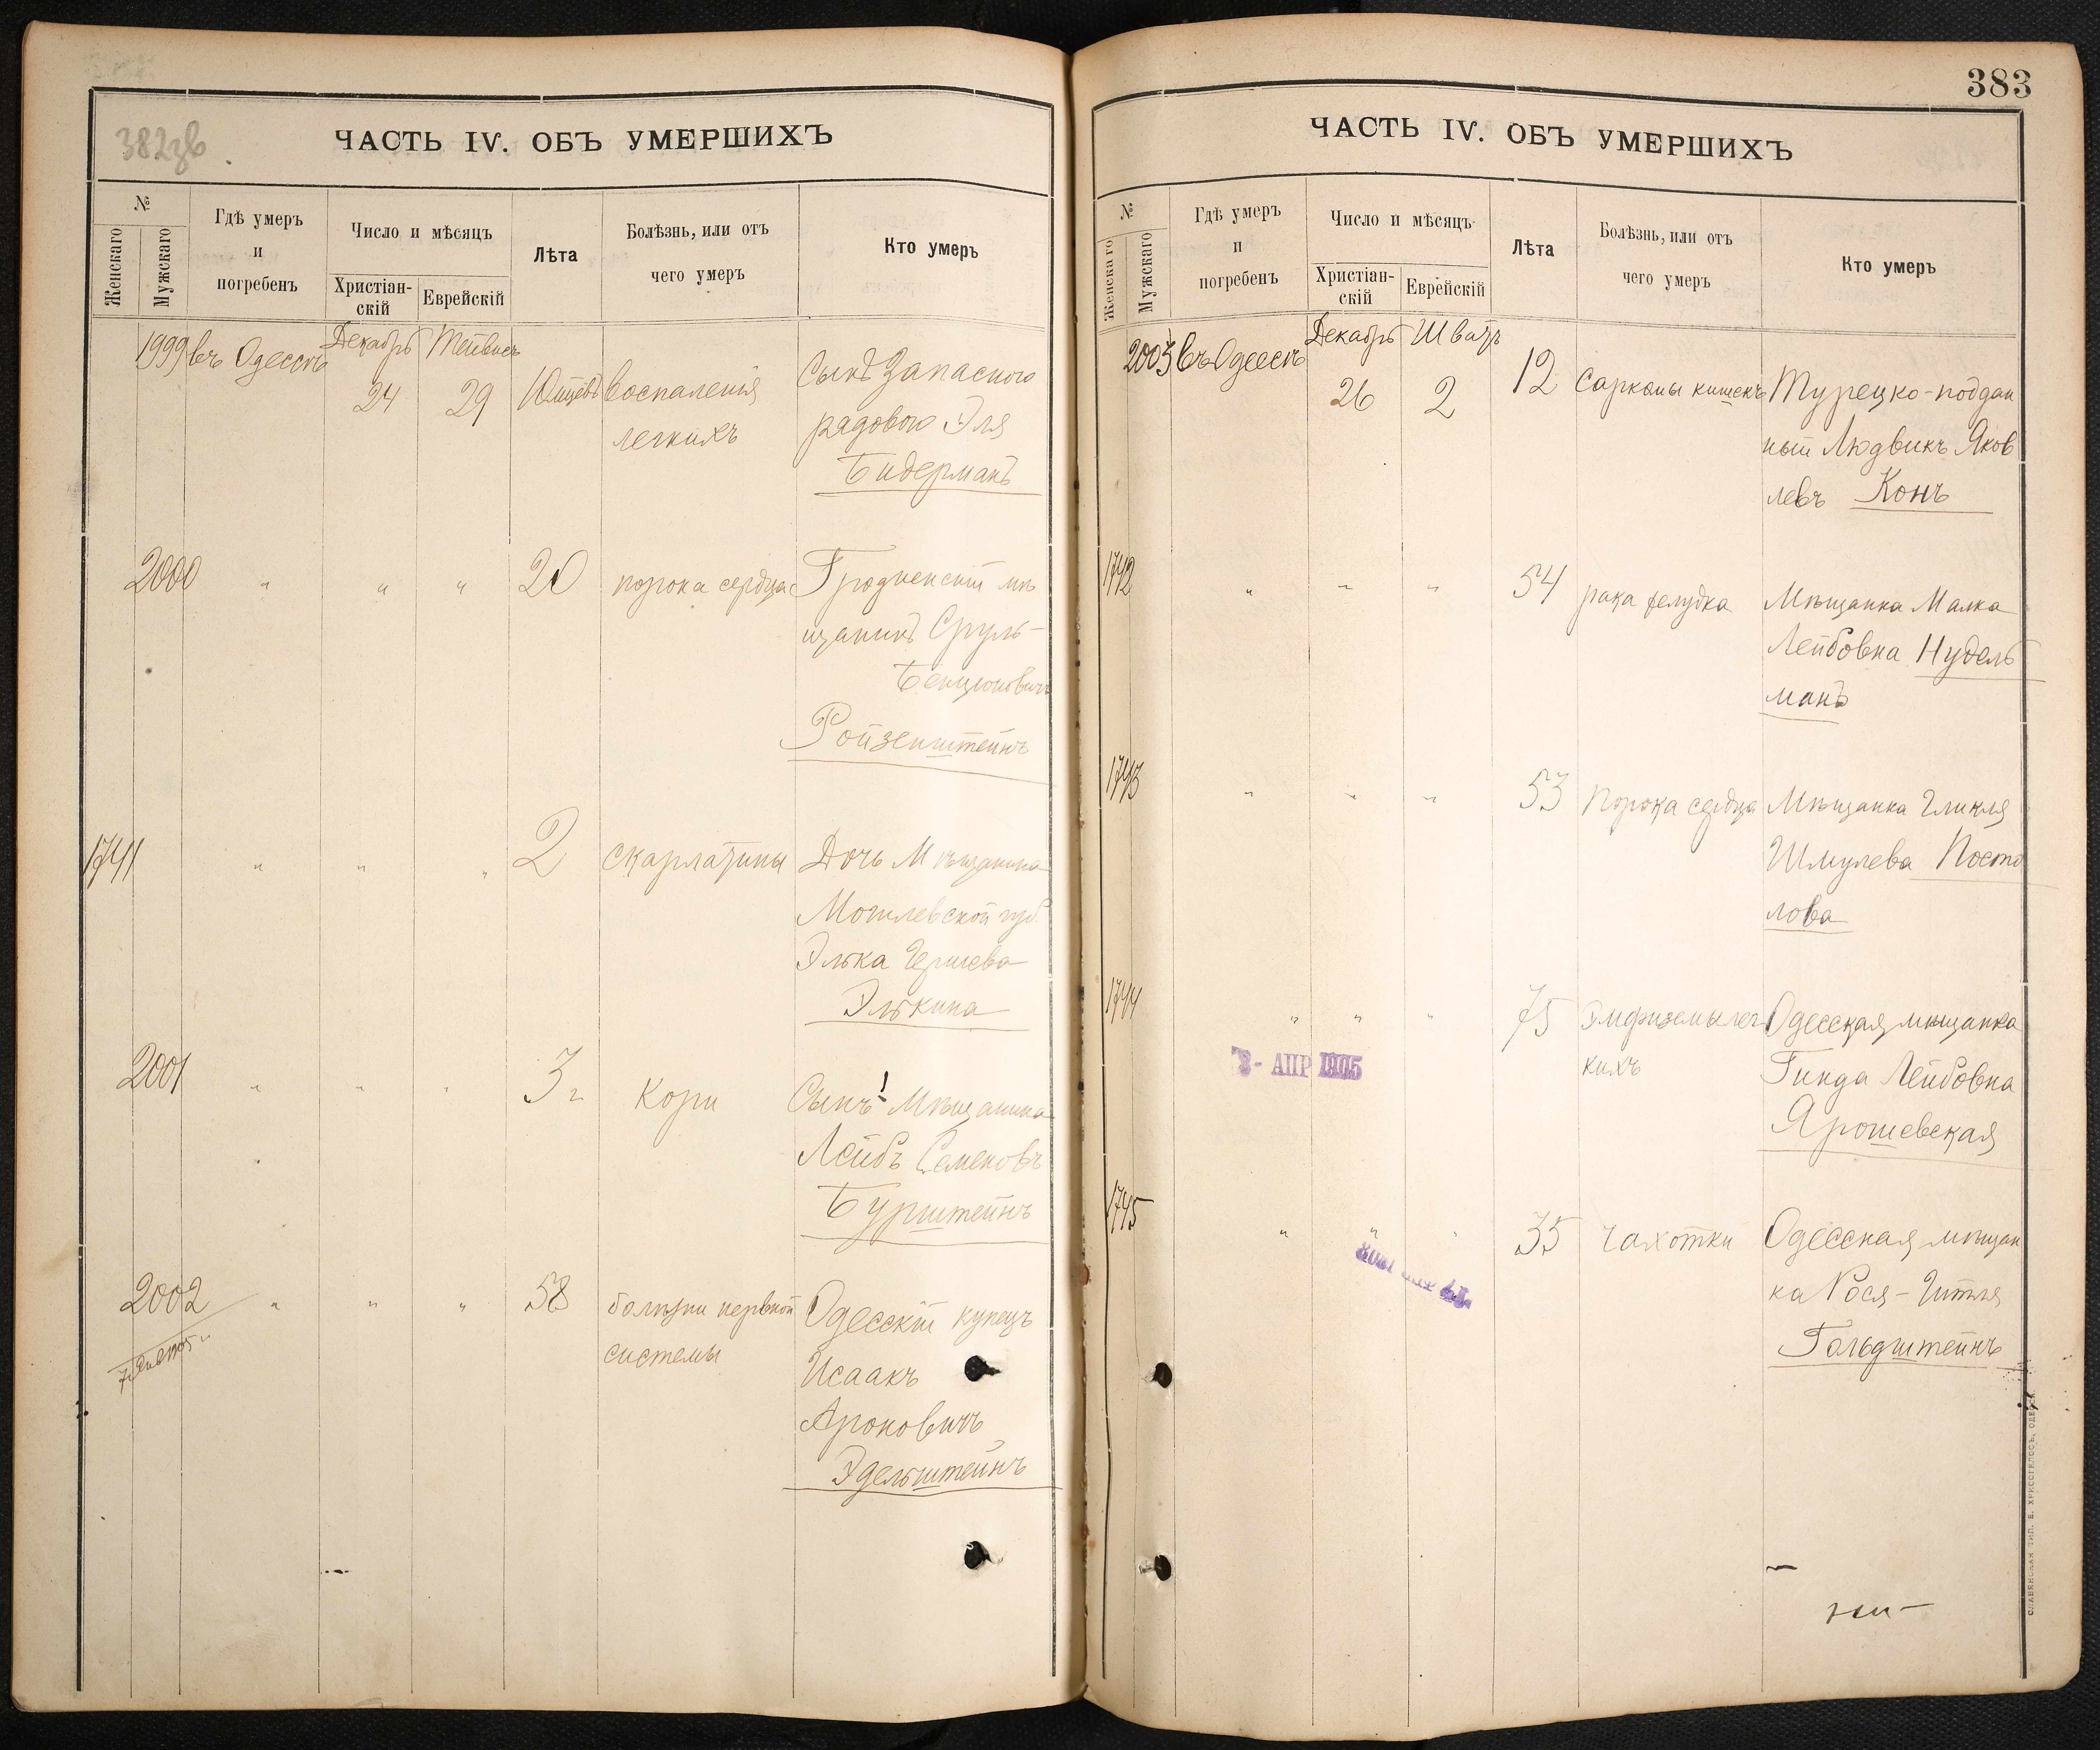 382зв.
ЧАСТЬ IV. ОБЪ УМЕРШИХЪ
№
Женскаго
Мужскаго
Гдѣ умеръ
и
погребенъ
Число и мѣсяцъ
Христіан-
скій
Еврейскій
Лѣта
Болѣзнь, или отъ
чего умеръ
Кто умеръ
1999 въ Одессѣ Декабрь Тейвись
24 29 воспаленія Сынъ Запаснаго
легкихъ рядового Эля
Бидерманъ
2000 " " " 20 порока сердца Гродненскій мѣ
щанинъ Сруль-
Бенционовичъ
Ройзенштейнъ
1741 " " " 2 скарлатины Дочь Мѣщанина
Могилевской губ.
Элька Гершева
Элькина
2001 " " " 3 г кори Сынъ Мѣщанина
Лейбъ Семеновъ
Бурштейнъ
2002 " " " 58 болѣзни нервной Одесскій купецъ
7 Янв 1905 г системы Исаакъ
Ароновичъ
Эдельштейнъ
383
ЧАСТЬ IV. ОБЪ УМЕРШИХЪ
№
Женскаго
Мужскаго
Гдѣ умеръ
и
погребенъ
Число и мѣсяцъ
Христіан-
скій
Еврейскій
Лѣта
Болѣзнь, или отъ
чего умеръ
Кто умеръ
2003 въ Одессѣ Декабрь Шватъ
26 2 12 Саркомы кишекъ Турецко-поддан
ный Людвикъ Яков
левъ Конъ
1742 " " " 54 рака желудка Мѣщанка Малка
Лейбовна Нудель
манъ
1743 " " " 53 Порока сердца Мѣщанка Гликля
Шмулева Посто
лова
1744 " " " 75 Эмфиземы лег Одесская мѣщанка
кихъ Гинда Лейбовна
Ярошевская
3- АПР 1905
1745 " " " 35 чахотки Одесская мѣщан
ка Рося-Гитля
Гольдштейнъ
СЛАВЯНСКАЯ ТИП. Е. ХРИСОГЕЛОСЪ, ОДЕССА